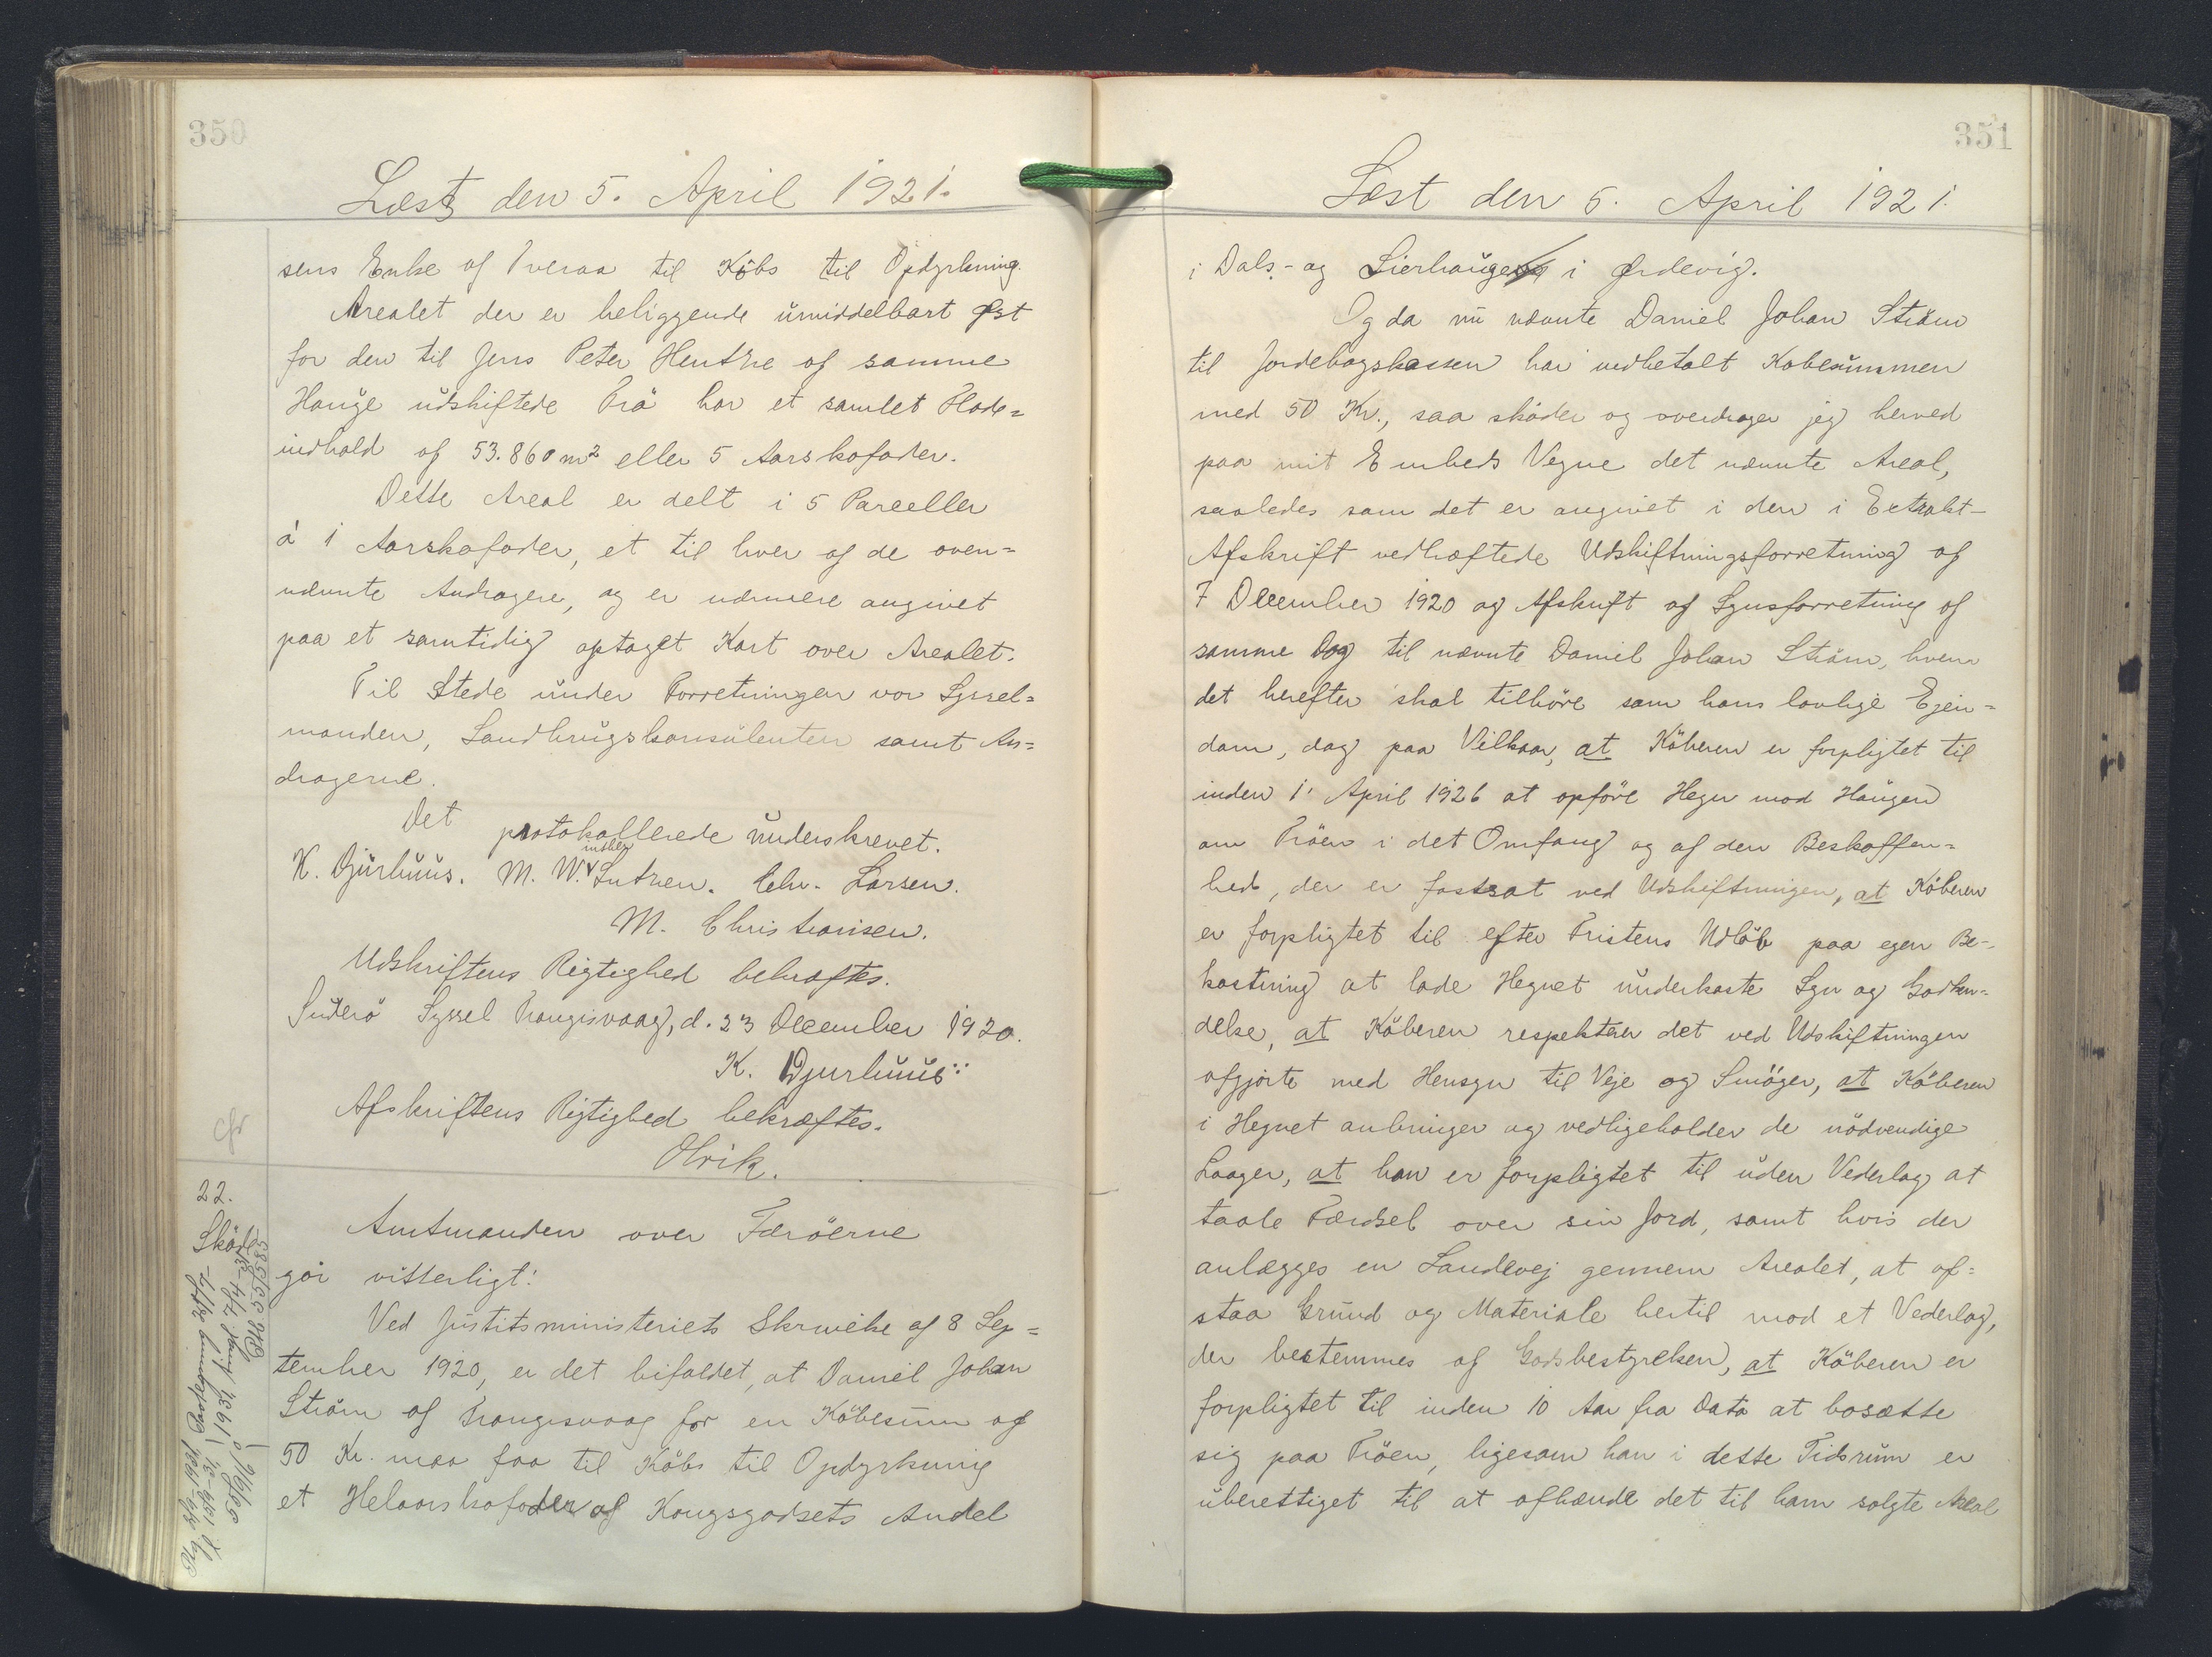 350
Læst den 5. April 1921.
sens Enke af Tveraa til Köbs til Opdyrkning.
Arealet der er beliggende umiddelbart Øst
for den til Jens Peter Hentze af samme
Hauge udskiftede Trö har et samlet Flade=
indhold af 53.860 m² eller 5 Aarskofoder.
Dette Areal er delt i 5 Parceller
à 1 Aarskofoder, et til hver af de oven=
nævnte Andragere, og er nærmere angivet
paa et samtidig optaget Kort over Arealet.
Til Stede under Forretningen var Syssel=
manden, Landbrugskonsulenten samt An=
dragerne.
Det protokollerede underskrevet.
K. Djurhuus. M. Winther Lützen. Chr. Larsen.
M. Christiansen.
Udskriftens Rigtighed bekræftes.
Suderö Syssel Trangisvaag, d. 23 December 1920.
K. Djurhuus
Afskriftens Rigtighed bekræftes.
Olrik.
cfr
22.
Sköde
Amtmanden over Færöerne
gör vitterligt:
Ved Justitsministeriets Skrivelse af 8 Sep=
tember 1920, er det bifaldet, at Daniel Johan
Ström af Trangisvaag for en Köbesum af
50 Kr. maa faa til Köbs til Opdyrkning
et Helaarskofoder af Kongsgodsets Andel
351
Læst den 5. April 1921.
i Dals- og Lierhauge i Ördevig.
Og da nu nævnte Daniel Johan Ström
til Jordebogskassen har indbetalt Köbesummen
med 50 Kr., saa sköder og overdrager jeg herved
paa mit Embeds Vegne det nævnte Areal,
saaledes som det er angivet i den i Extrakt-
Afskrift vedhæftede Udskiftningsforretning af
7 December 1920 og Afskrift af Synsforretning af
samme Dag til nævnte Daniel Johan Ström, hvem
det herefter skal tilhöre som hans lovlige Ejen=
dom, dog paa Vilkaar, at Köberen er forpligtet til
inden 1' April 1926 at opföre Hegn mod Haugen
om Tröen i det Omfang og af den Beskaffen=
hed, der er fastsat ved Udskiftningen, at Köberen
er forpligtet til efter Fristens Udlöb paa egen Be-
kostning at lade Hegnet underkaste Syn og Godken=
delse, at Köberen respekterer det ved Udskiftningen
afgjorte med Hensyn til Veje og Smöger, at Köberen
i Hegnet anbringer og vedligeholder de nödvendige
Laager, at han er forpligtet til uden Vederlag at
taale Færdsel over sin Jord, samt hvis der
anlægges en Landevej gennem Arealet, at af=
staa Grund og Materiale hertil mod et Vederlag,
der bestemmes af Godsbestyrelsen, at Köberen er
forpligtet til inden 10 Aar fra Dato at bosætte
sig paa Tröen, ligesom han i dette Tidsrum er
uberettiget til at afhænde det til ham solgte Areal